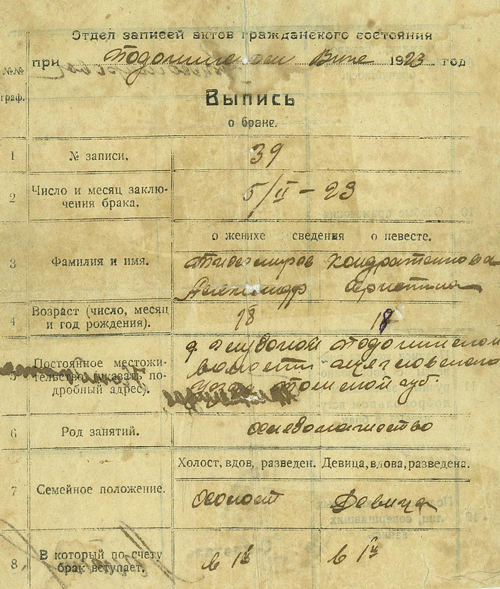 Отдел записей актов гражданского состояния
при Тодоминском Вике 1923 год
№№ граф.
Выпись
о браке.
1 № записи. 39
2 Число и месяц заключения брака. 5/II - 23
о женихе сведения о невесте.
3 Фамилия и имя.
Александр
4 Возраст (число, месяц и год рождения). 18 18
5 Постоянное местожительство (указать подробный адрес).
Тодоминской
волости
Томской губ.
6 Род занятий.
Холост, вдов, разведен. Девица, вдова, разведена.
7 Семейное положение. Холост Девица
8 В который по счету брак вступает. в 1й в 1й